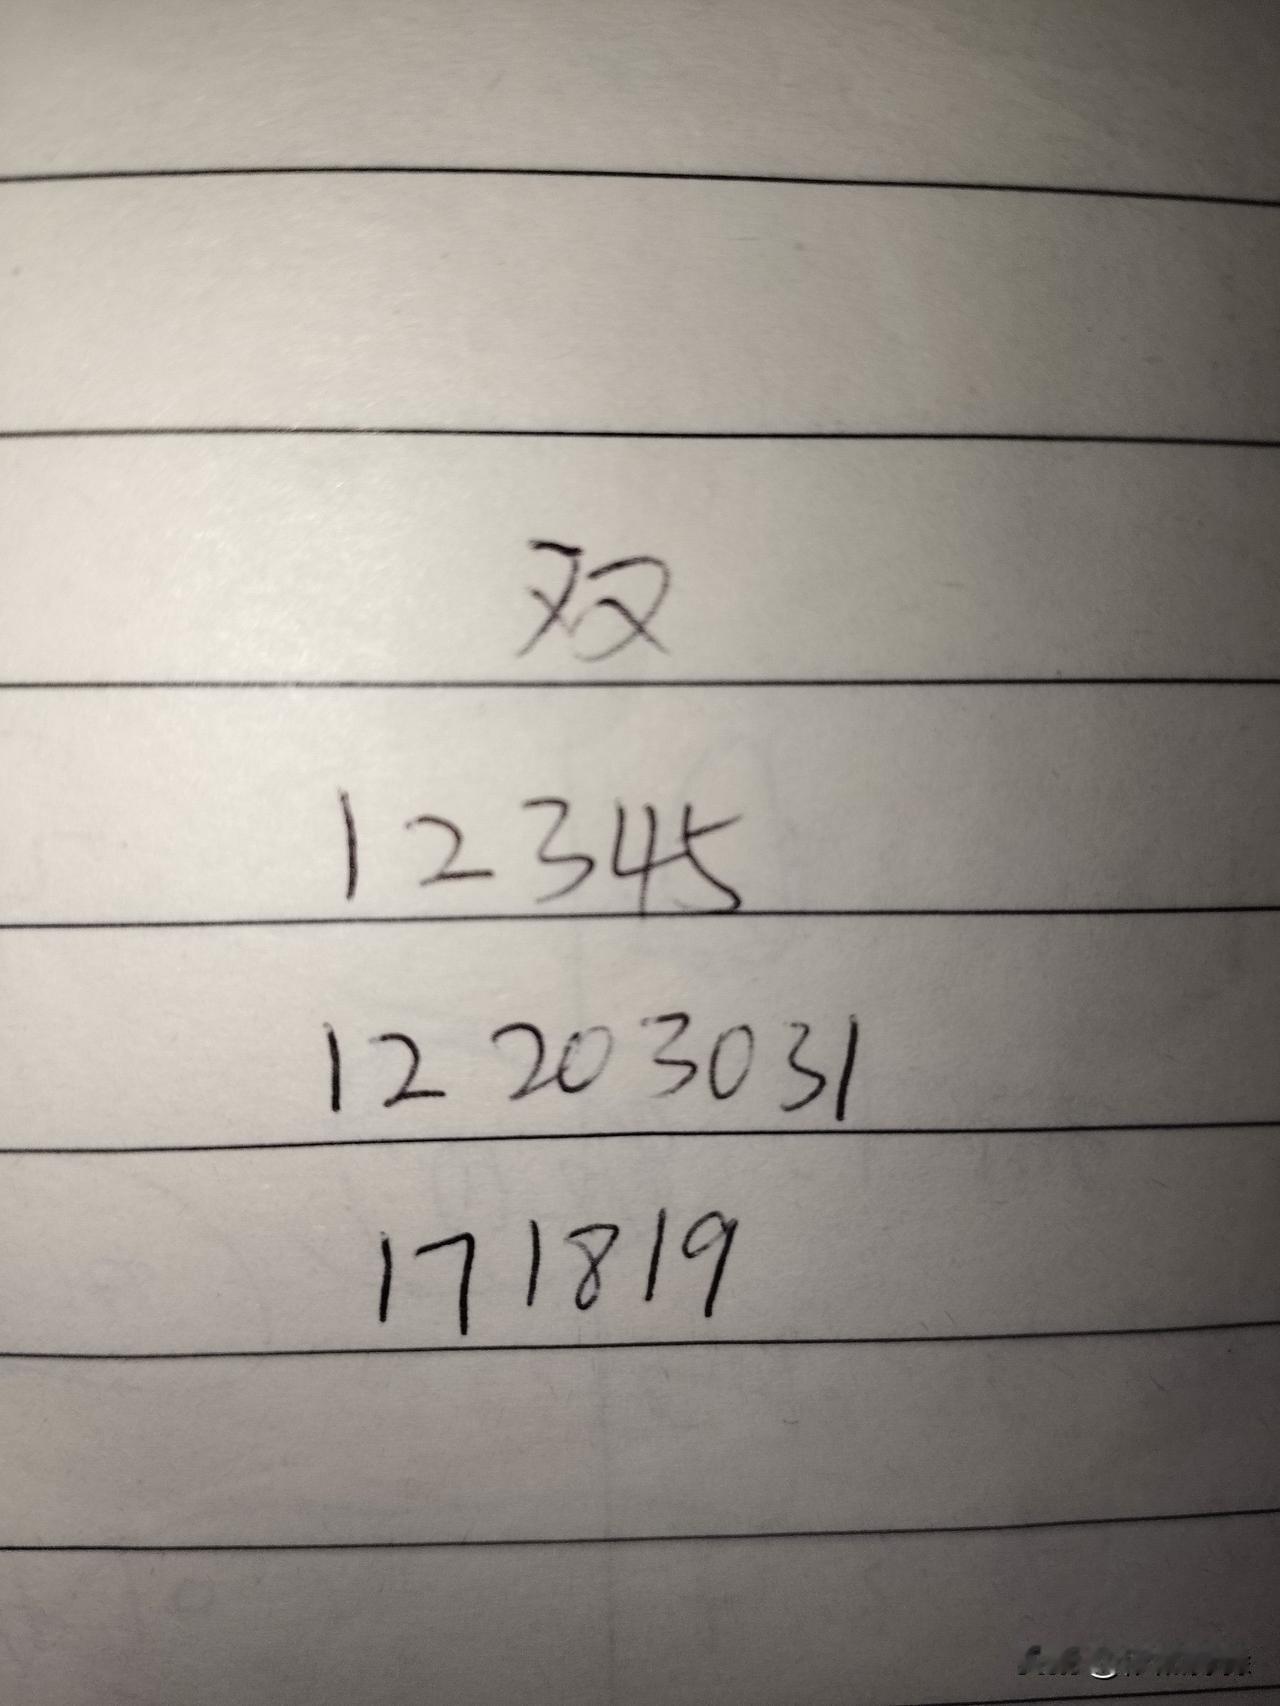 双
1 2 3 4 5
12 20 30 31
17 18 19